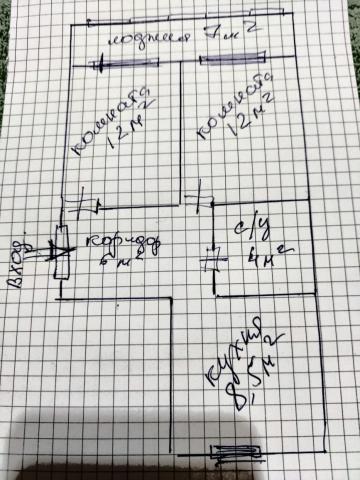 лоджия 7 м2
комната
12 м2
комната
12 м2
вход
коридор
6 м2
с/у
4 м2
кухня
8,5 м2